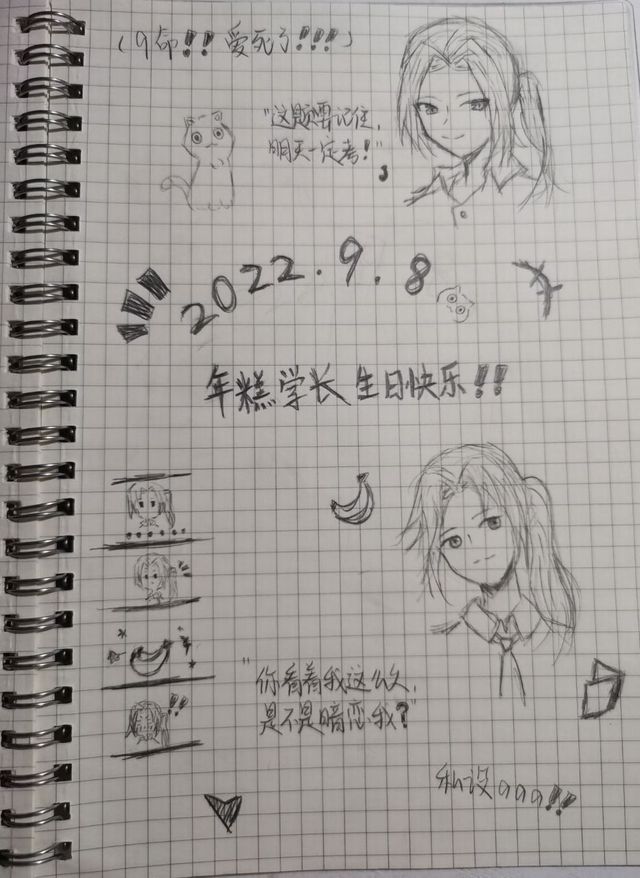 (9命!! 爱死了!!!)
"这题要记住,
明天一定考!"
2022.9.8
年糕学长 生日快乐!!
"你看着我这么久,
是不是暗恋我?"
私设qqq!!